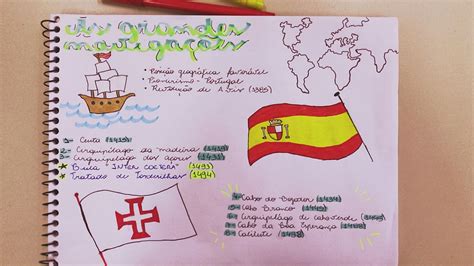 As grandes
navegações
• Posição geográfica favorável
• Pioneirismo - Portugal
• Revolução de Avis (1385)
1- Ceuta (1415)
2- Arquipélago da madeira
3- Arquipélago dos açores
Bula "INTER COETERA" (1493)
Tratado de Tordesilhas (1494)
4- Cabo do Bojador (1434)
5- Cabo Branco
6- Arquipélago de cabo verde
7- Cabo da Boa Esperança
8- Calicute (1498)